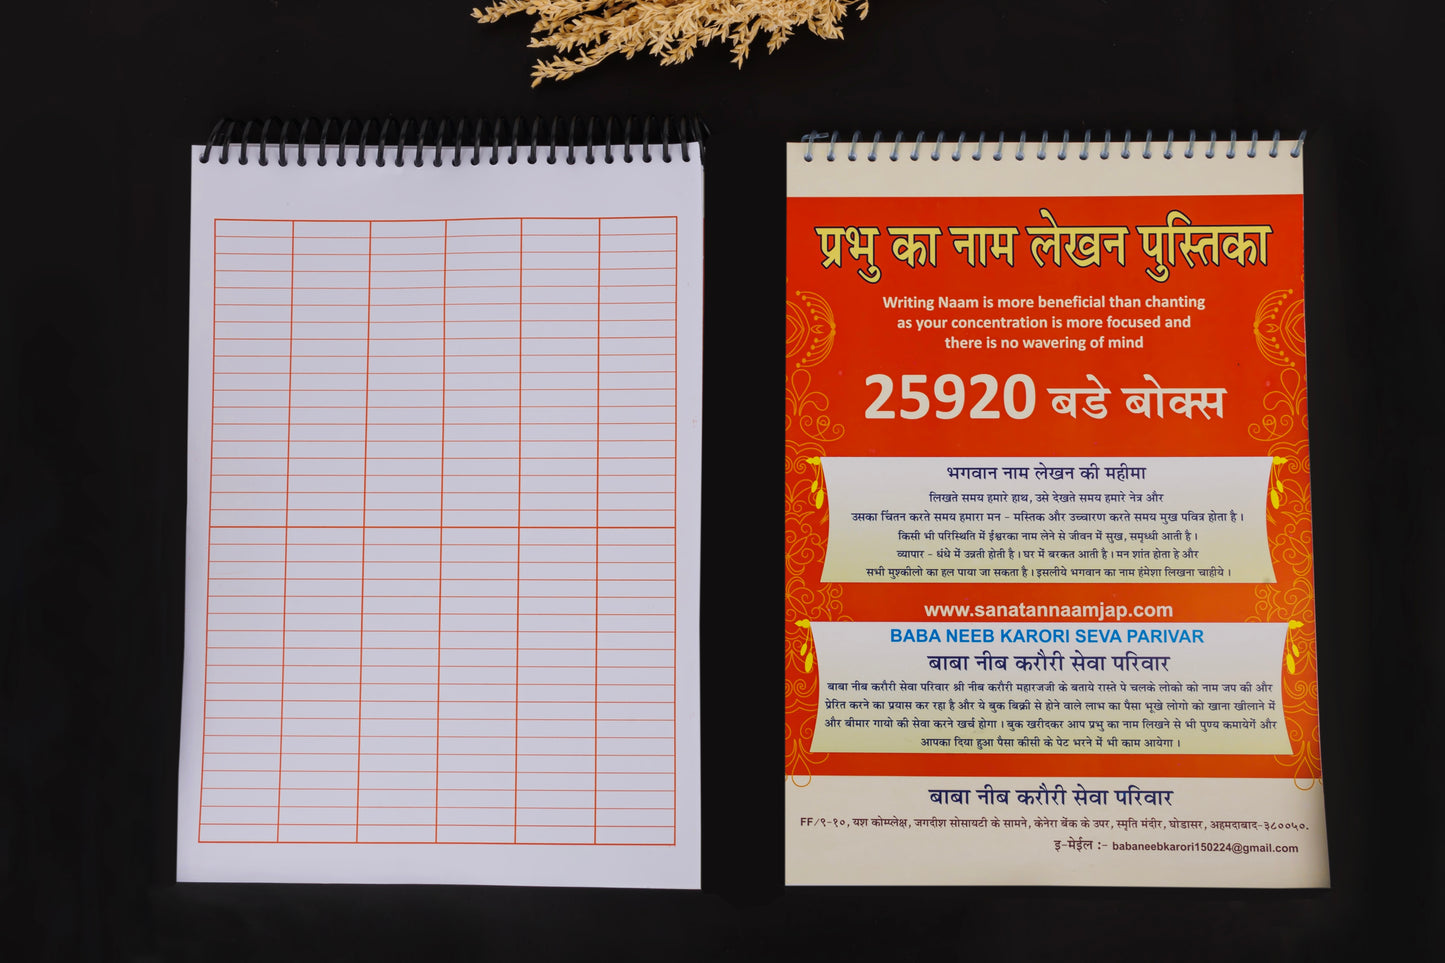 प्रभु का नाम लेखन पुस्तिका
Writing Naam is more beneficial than chanting
as your concentration is more focused and
there is no wavering of mind
25920 बडे बोक्स
भगवान नाम लेखन की महीमा
लिखते समय हमारे हाथ, उसे देखते समय हमारे नेत्र और
उसका चिंतन करते समय हमारा मन - मस्तिक और उच्चारण करते समय मुख पवित्र होता है ।
किसी भी परिस्थिति में ईश्वरका नाम लेने से जीवन में सुख, समृध्धी आती है ।
व्यापार - धंधे में उन्नती होती है । घर में बरकत आती है । मन शांत होता हे और
सभी मुश्कीलो का हल पाया जा सकता है । इसलीये भगवान का नाम हंमेशा लिखना चाहीये ।
www.sanatannaamjap.com
BABA NEEB KARORI SEVA PARIVAR
बाबा नीब करौरी सेवा परिवार
बाबा नीब करौरी सेवा परिवार श्री नीब करौरी महारजजी के बताये रास्ते पे चलके लोको को नाम जप की और
प्रेरित करने का प्रयास कर रहा है और ये बुक बिक्री से होने वाले लाभ का पैसा भूखे लोगो को खाना खीलाने में
और बीमार गायो की सेवा करने खर्च होगा । बुक खरीदकर आप प्रभु का नाम लिखने से भी पुण्य कमायेगें और
आपका दिया हुआ पैसा कीसी के पेट भरने में भी काम आयेगा ।
बाबा नीब करौरी सेवा परिवार
FF/९-१०, यश कोम्प्लेक्ष, जगदीश सोसायटी के सामने, केनेरा बेंक के उपर, स्मृति मंदीर, घोडासर, अहमदाबाद-३८००५०.
इ-मेईल :- babaneebkarori150224@gmail.com